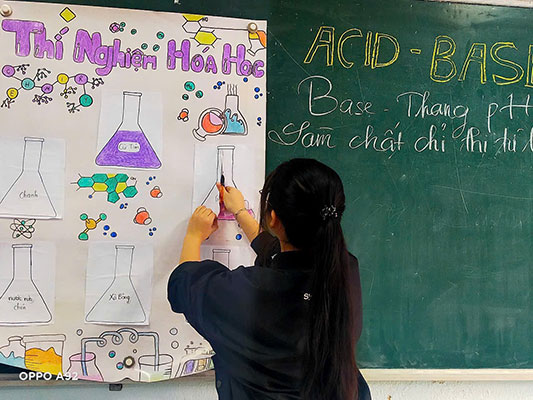 Thí Nghiệm Hóa Học
ACID - BASE
Base - Thang pH
Làm chất chỉ thị từ
Củ Tím
Chanh
nước rửa
chén
Xà Bông
OPPO A52